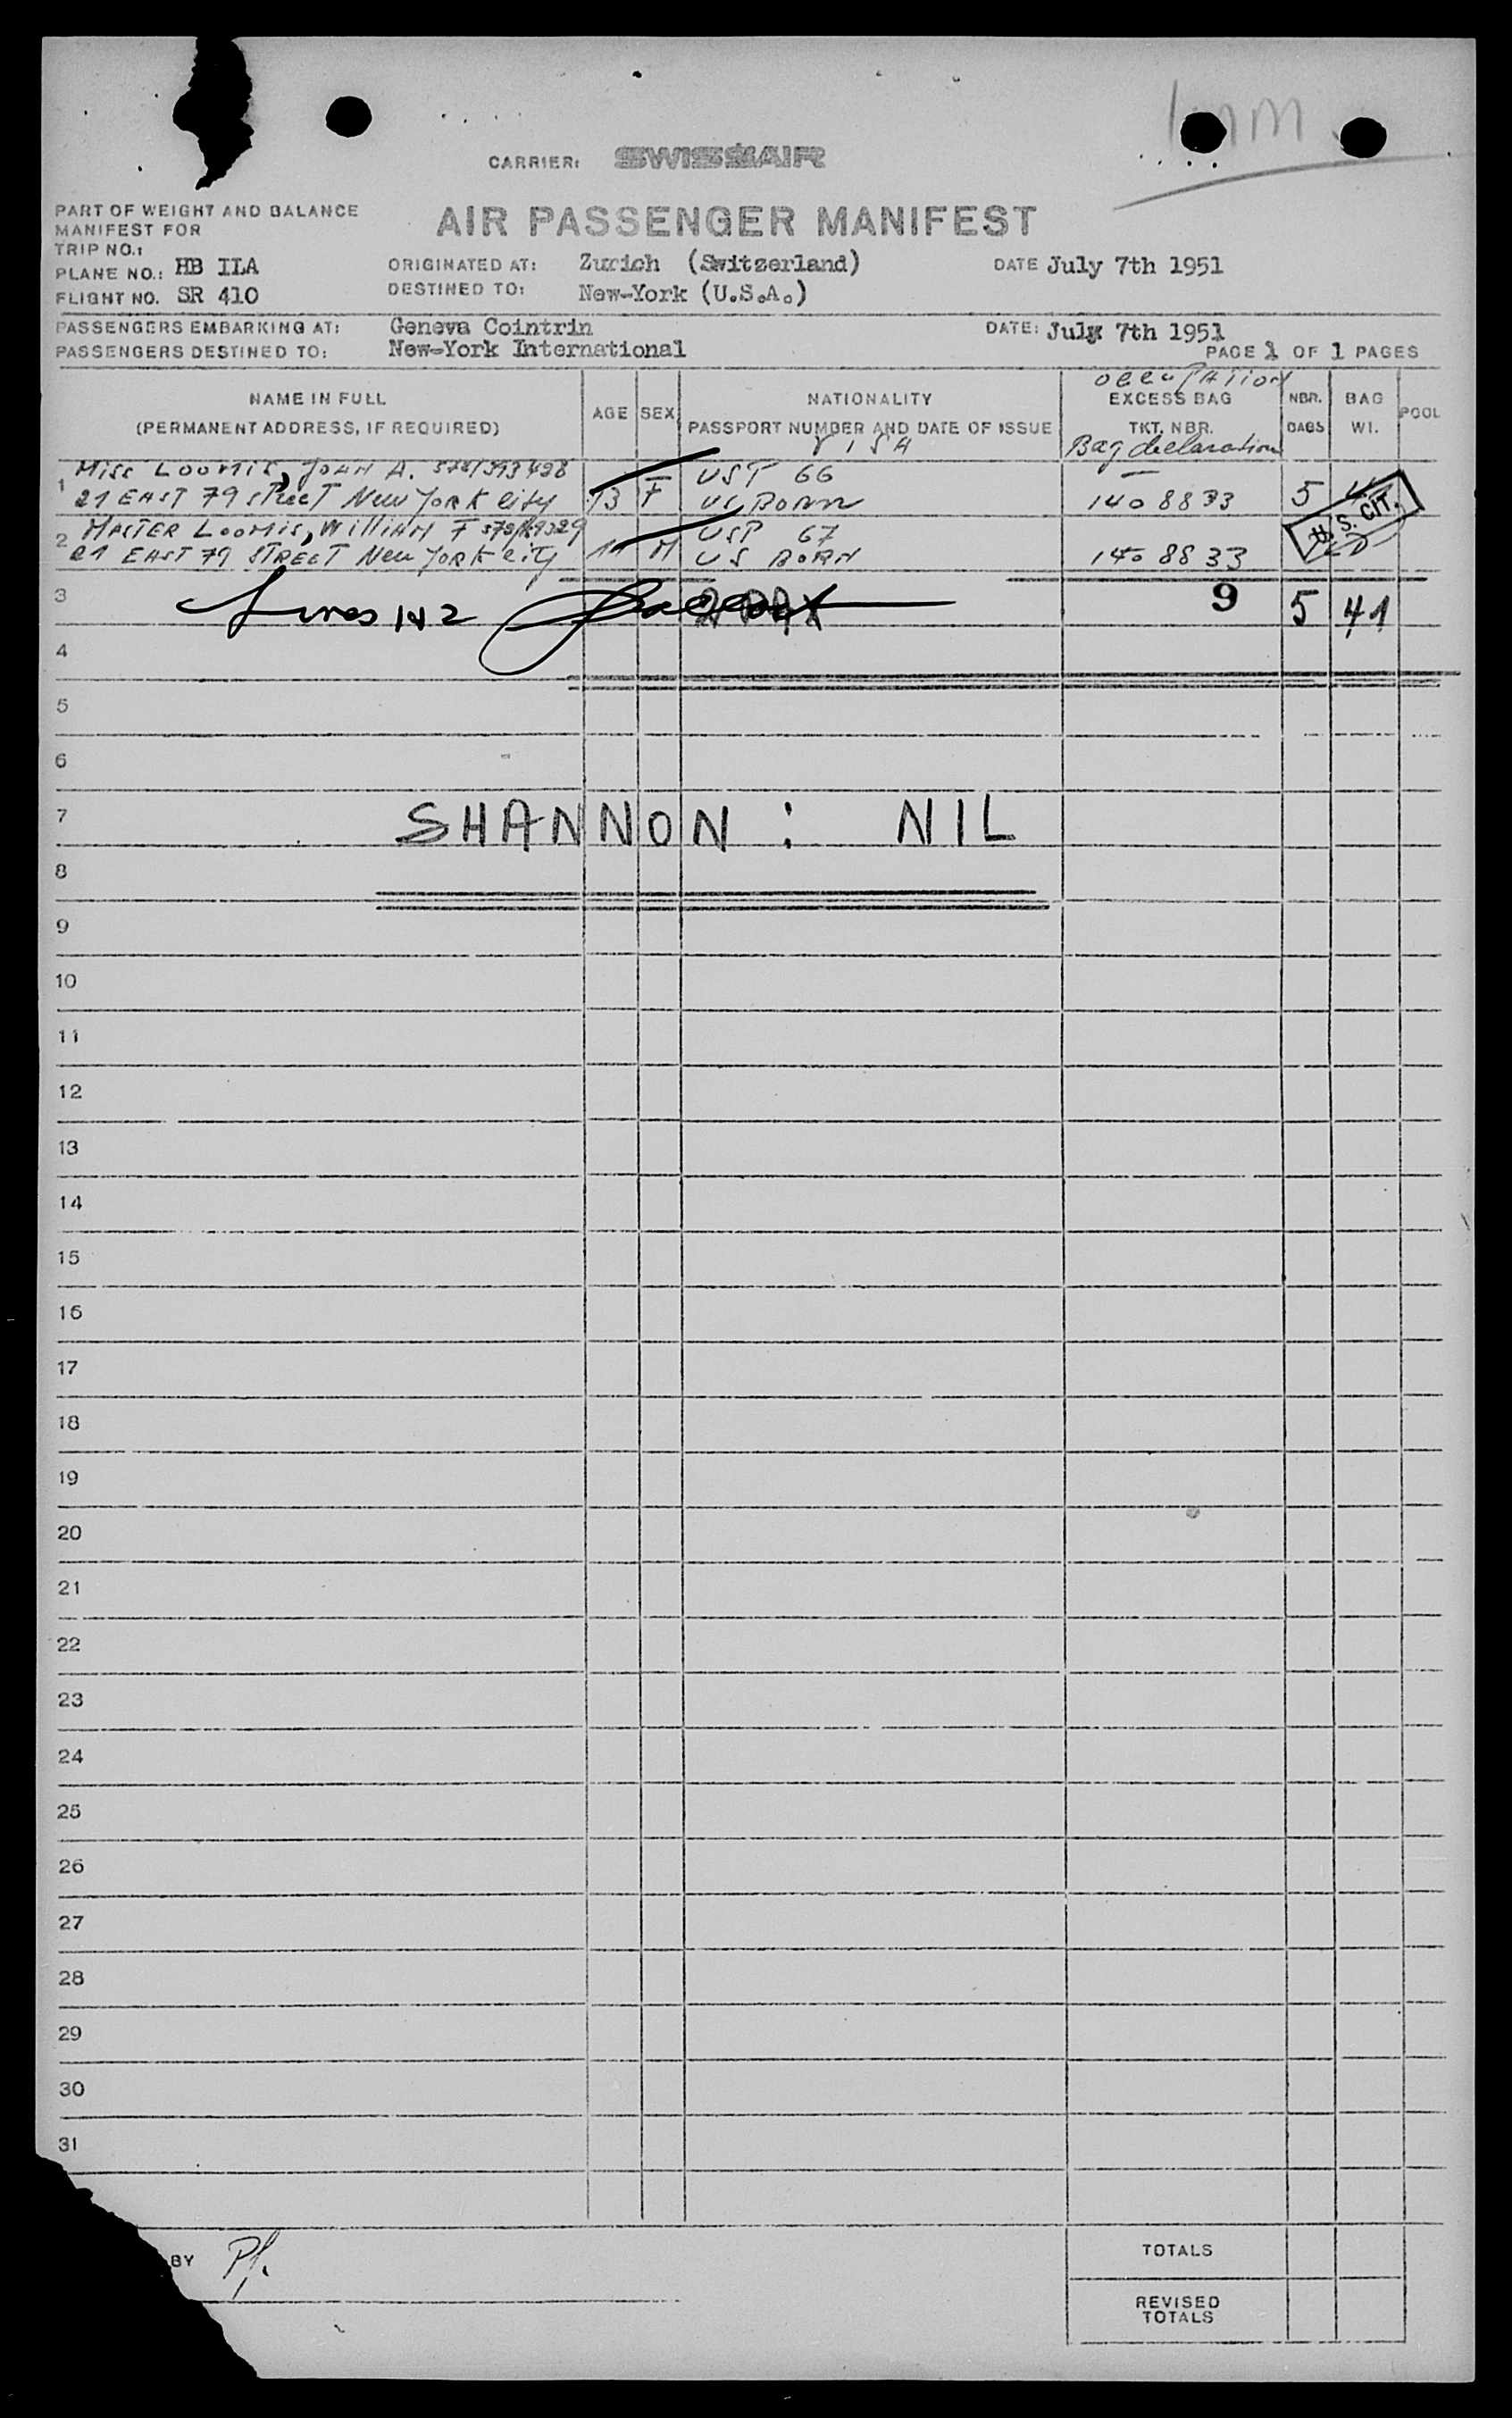 Imm
CARRIER: SWISSAIR
PART OF WEIGHT AND BALANCE
MANIFEST FOR
TRIP NO.:
AIR PASSENGER MANIFEST
PLANE NO.: HB ILA ORIGINATED AT: Zurich (Switzerland) DATE July 7th 1951
FLIGHT NO. SR 410 DESTINED TO: New-York (U.S.A.)
PASSENGERS EMBARKING AT: Geneva Cointrin DATE: July 7th 1951
PASSENGERS DESTINED TO: New-York International
PAGE 1 OF 1 PAGES
occupation
NAME IN FULL AGE SEX NATIONALITY EXCESS BAG NBR. BAG POOL
(PERMANENT ADDRESS, IF REQUIRED) PASSPORT NUMBER AND DATE OF ISSUE TKT. NBR. BAGS WT.
VISA Bag declaration
1 Miss Loomis, JOAN A. 578/393428 13 F UST 66 —
21 EAST 79 street New York city US BORN 1408833 5
U.S. CIT.
2 MASTER Loomis, William F 11 M USP 67
21 EAST 79 STREET New York city US BORN 1408833
3 Lines 1+2 2 PAX 9 5 41
4
5
6
7 SHANNON : NIL
8
9
10
11
12
13
14
15
16
17
18
19
20
21
22
23
24
25
26
27
28
29
30
31
BY Pf.
TOTALS
REVISED
TOTALS